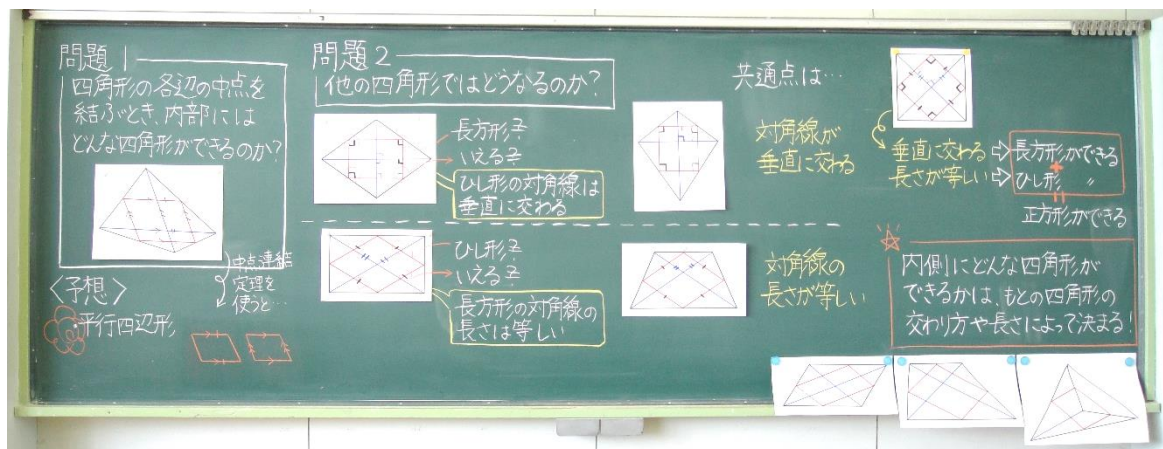 問題1
四角形の各辺の中点を
結ぶとき、内部には
どんな四角形ができるのか?
〈予想〉
・平行四辺形
中点連結
定理を
使うと…
問題2
他の四角形ではどうなるのか?
長方形?
いえる?
ひし形の対角線は
垂直に交わる
ひし形?
いえる?
長方形の対角線の
長さは等しい
共通点は…
対角線が
垂直に交わる
対角線の
長さが等しい
垂直に交わる⇨長方形ができる
長さが等しい⇨ひし形 〃
正方形ができる
内側にどんな四角形が
できるかは、もとの四角形の
交わり方や長さによって決まる!